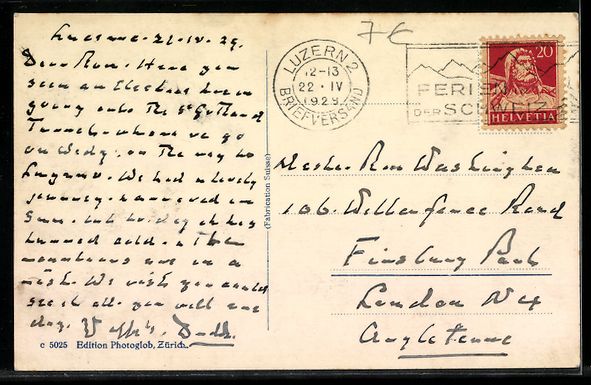 Lucerne. 21.IV.29.
Dear Ron. Here you
see an Electric train
going into The St Gothard
Tunnel where we go
on Wedy: on The way to
Lugano. We had a lovely
journey. have arrived in
Sun. but to-day it has
turned cold. & The
mountains are in a
mist. We wish you could
see it all. you will one
day.
Dadd.
c 5025 Edition Photoglob, Zürich.
(Fabrication Suisse)
7 €
LUZERN 2
12-13
22.IV
1929
BRIEFVERSAND
FERIEN
DER SCHWEIZ
20
HELVETIA
Master Ron Washington
106. Wilberforce Road
Finsbury Park
London N4
Angleterre